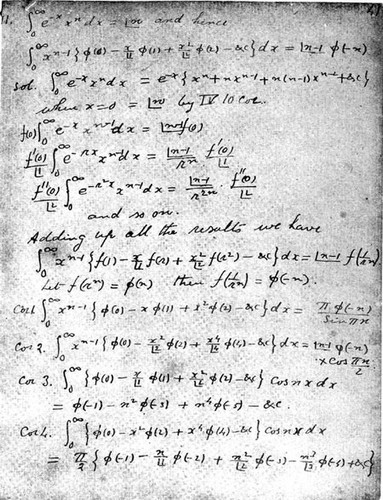 11. ∫₀^∞ e^{-x} x^n dx = |n and hence
∫₀^∞ x^{n-1} {φ(0) - x/|1 φ(1) + x²/|2 φ(2) - &c} dx = |n-1 φ(-n)
Sol. ∫₀^∞ e^{-x} x^n dx = e^{-x} {x^n + n x^{n-1} + n(n-1) x^{n-2} + &c}
when x=0 = |n by IV 10 Cor.
f(0) ∫₀^∞ e^{-x} x^{n-1} dx = |n-1 f(0)
f'(0)/|1 ∫₀^∞ e^{-rx} x^{n-1} dx = |n-1/r^n · f'(0)/|1
f''(0)/|2 ∫₀^∞ e^{-r²x} x^{n-1} dx = |n-1/r^{2n} · f''(0)/|2
and so on.
Adding up all the results we have
∫₀^∞ x^{n-1} {f(1) - x/|1 f(r) + x²/|2 f(r²) - &c} dx = |n-1 f(1/r^n)
Let f(r^n) = φ(n) then f(1/r^n) = φ(-n).
Cor 1. ∫₀^∞ x^{n-1} {φ(0) - x φ(1) + x² φ(2) - &c} dx = π φ(-n)/sin πn
Cor 2. ∫₀^∞ x^{n-1} {φ(0) - x²/|2 φ(2) + x⁴/|4 φ(4) - &c} dx = |n-1 φ(-n)
× cos πn/2
Cor 3. ∫₀^∞ {φ(0) - x/|1 φ(1) + x²/|2 φ(2) - &c} cos nx dx
= φ(-1) - n² φ(-3) + n⁴ φ(-5) - &c.
Cor 4. ∫₀^∞ {φ(0) - x² φ(2) + x⁴ φ(4) - &c} cos nx dx
= π/2 {φ(-1) - n/|1 φ(-2) + n²/|2 φ(-3) - n³/|3 φ(-4) + &c}